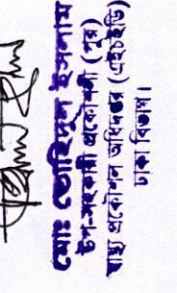 মোঃ তৌহিদুল ইসলাম
উপ-সহকারী প্রকৌশলী (পুর)
স্বাস্থ্য প্রকৌশল অধিদপ্তর (এইচইডি)
ঢাকা বিভাগ।